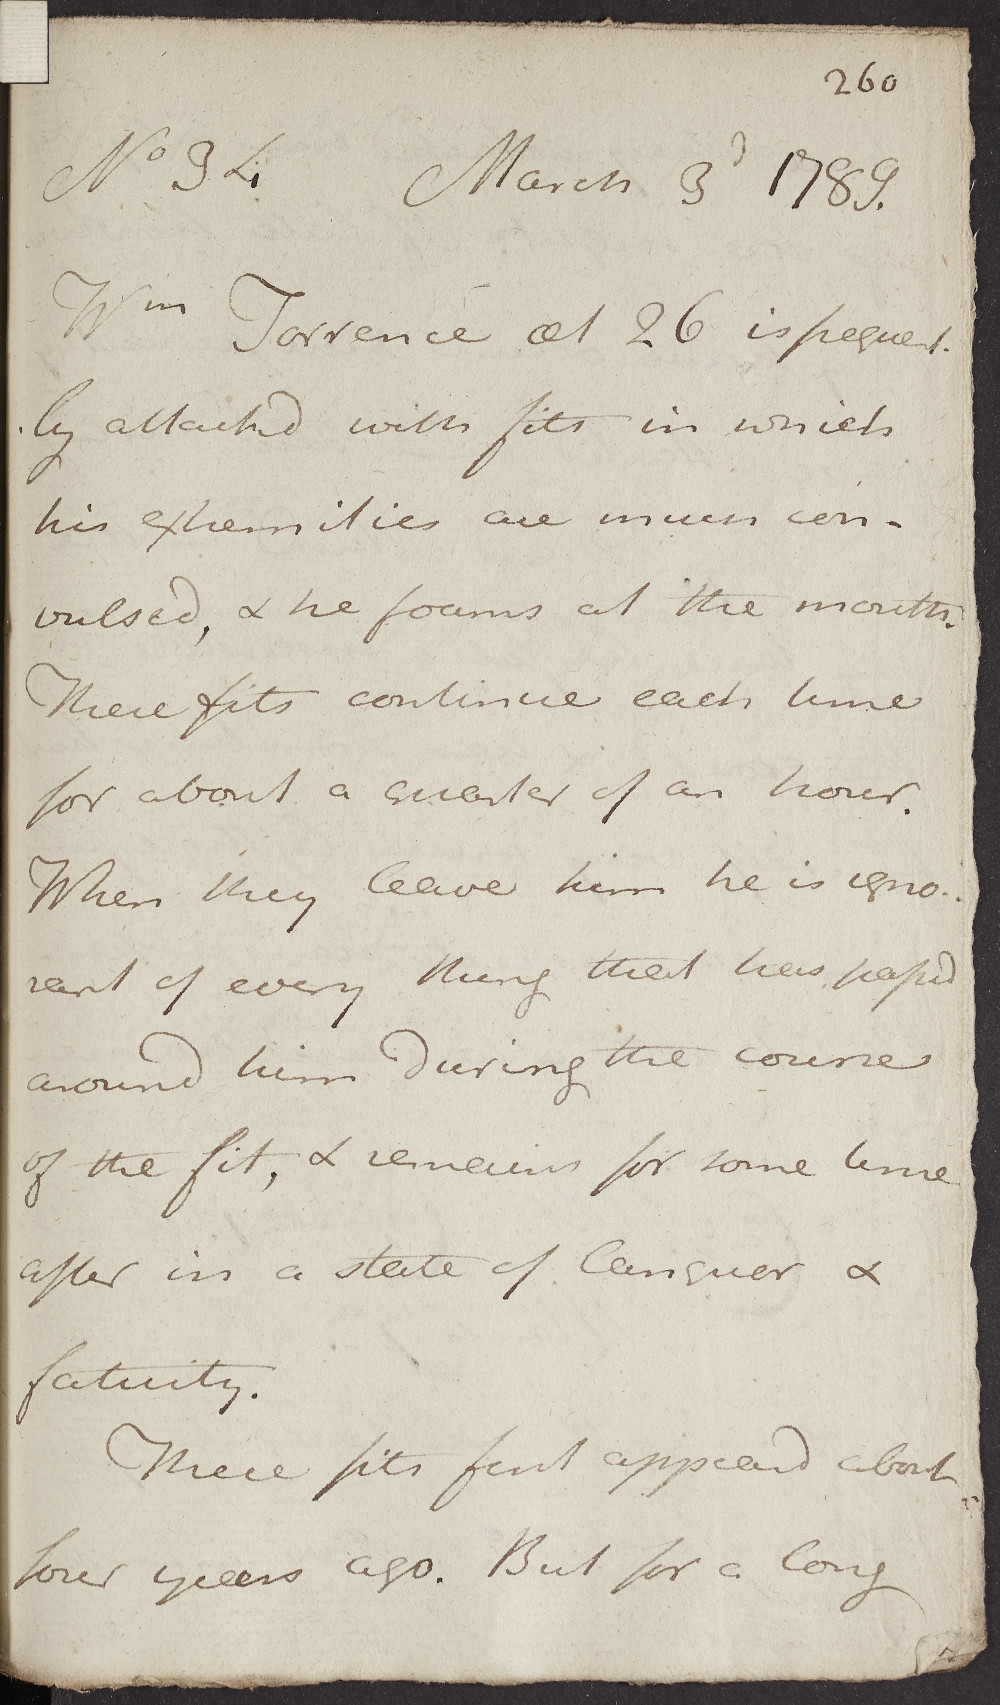 260
No 34. March 3d 1789.
Wm Torrence æt 26 is frequent-
-ly attacked with fits in which
his extremities are much con-
vulsed, & he foams at the mouth.
These fits continue each time
for about a quarter of an hour.
When they leave him he is igno-
rant of every thing that has passd
around him during the course
of the fit, & remains for some time
after in a state of languor &
fatuity.
These fits first appeard about
four years ago. But for a long